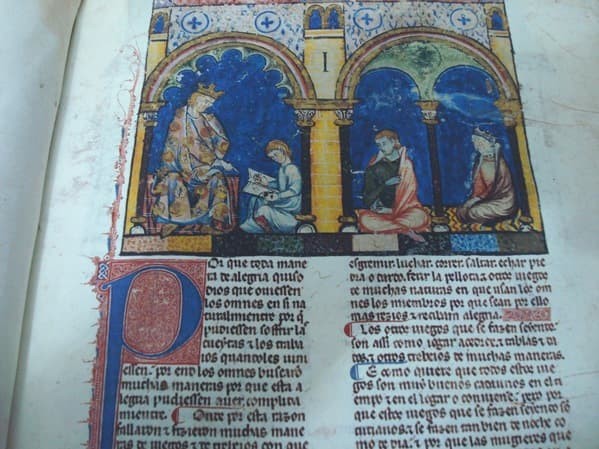 I
Por que toda mane
ra de alegria quiso
dios que ouiessen
los omnes en si na
turalmientre por q̄
pudiessen soffrir las
cueytas & los traba
ios quandoles uini
essen. por end los omnes buscarō
muchas maneras por que esta a
legria pudiessen auer complida
mientre. Onde por esta razon
fallaron & fizieron muchas mane
ras de iuegos & de trebeios con que
esgremir. luchar. correr. saltar. echar pie
dra o dardo. ferir la pellota & otros iuegos
de muchas naturas en que usan los om
nes los miembros por que sean por ello
mas rezios & reciban alegria.
Los otros iuegos que se fazen seyendo
son assi como iogar acedrex & tablas & da
dos & otros trebeios de muchas maneras.
E como quiere que todos estos iue
gos son muy buenos cadaunos en el ti
empo & en el logar o conuiene. pero por
que estos iuegos que se fazen seyendo sō
cutianos. & se fazen tan bien de noche co
mo de dia. & por que las mugieres que